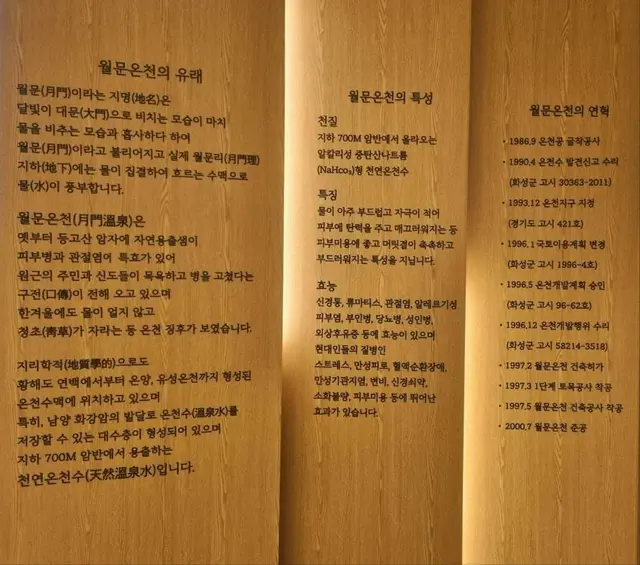 월문온천의 유래
월문(月門)이라는 지명(地名)은
달빛이 대문(大門)으로 비치는 모습이 마치
물을 비추는 모습과 흡사하다 하여
월문(月門)이라고 불리어지고 실제 월문리(月門理)
지하(地下)에는 물이 집결하여 흐르는 수맥으로
물(水)이 풍부합니다.
월문온천(月門溫泉)은
옛부터 등고산 암자에 자연용출샘이
피부병과 관절염에 특효가 있어
원근의 주민과 신도들이 목욕하고 병을 고쳤다는
구전(口傳)이 전해 오고 있으며
한겨울에도 물이 얼지 않고
청초(靑草)가 자라는 등 온천 징후가 보였습니다.
지리학적(地質學的)으로도
황해도 연백에서부터 온양, 유성온천까지 형성된
온천수맥에 위치하고 있으며
특히, 남양 화강암의 발달로 온천수(溫泉水)를
저장할 수 있는 대수층이 형성되어 있으며
지하 700M 암반에서 용출하는
천연온천수(天然溫泉水)입니다.
월문온천의 특성
천질
지하 700M 암반에서 올라오는
알칼리성 중탄산나트륨
(NaHco₃)형 천연온천수
특징
물이 아주 부드럽고 자극이 적어
피부에 탄력을 주고 매끄러워지는 등
피부미용에 좋고 머릿결이 촉촉하고
부드러워지는 특성을 지닙니다.
효능
신경통, 류마티스, 관절염, 알레르기성
피부염, 부인병, 당뇨병, 성인병,
외상후유증 등에 효능이 있으며
현대인들의 질병인
스트레스, 만성피로, 혈액순환장애,
만성기관지염, 변비, 신경쇠약,
소화불량, 피부미용 등에 뛰어난
효과가 있습니다.
월문온천의 연혁
• 1986.9 온천공 굴착공사
• 1990.4 온천수 발견신고 수리
(화성군 고시 30363-2011)
• 1993.12 온천지구 지정
(경기도 고시 421호)
• 1996.1 국토이용계획 변경
(화성군 고시 1996-4호)
• 1996.5 온천개발계획 승인
(화성군 고시 96-62호)
• 1996.12 온천개발행위 수리
(화성군 고시 58214-3518)
• 1997.2 월문온천 건축허가
• 1997.3 1단계 토목공사 착공
• 1997.5 월문온천 건축공사 착공
• 2000.7 월문온천 준공